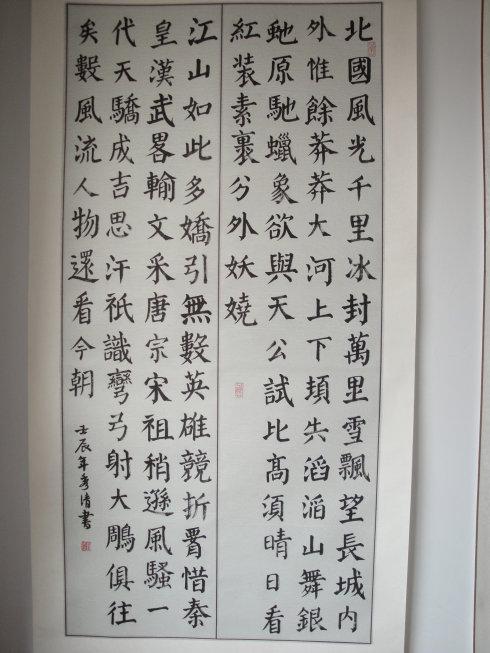 北國風光千里冰封萬里雪飄望長城内
外惟餘莽莽大河上下頓失滔滔山舞銀
虵原馳蠟象欲與天公試比高須晴日看
紅装素裹分外妖嬈
江山如此多嬌引無數英雄競折腰惜秦
皇漢武畧輸文采唐宗宋祖稍遜風騷一
代天驕成吉思汗祇識彎弓射大鵰俱往
矣數風流人物還看今朝
壬辰年秀清書